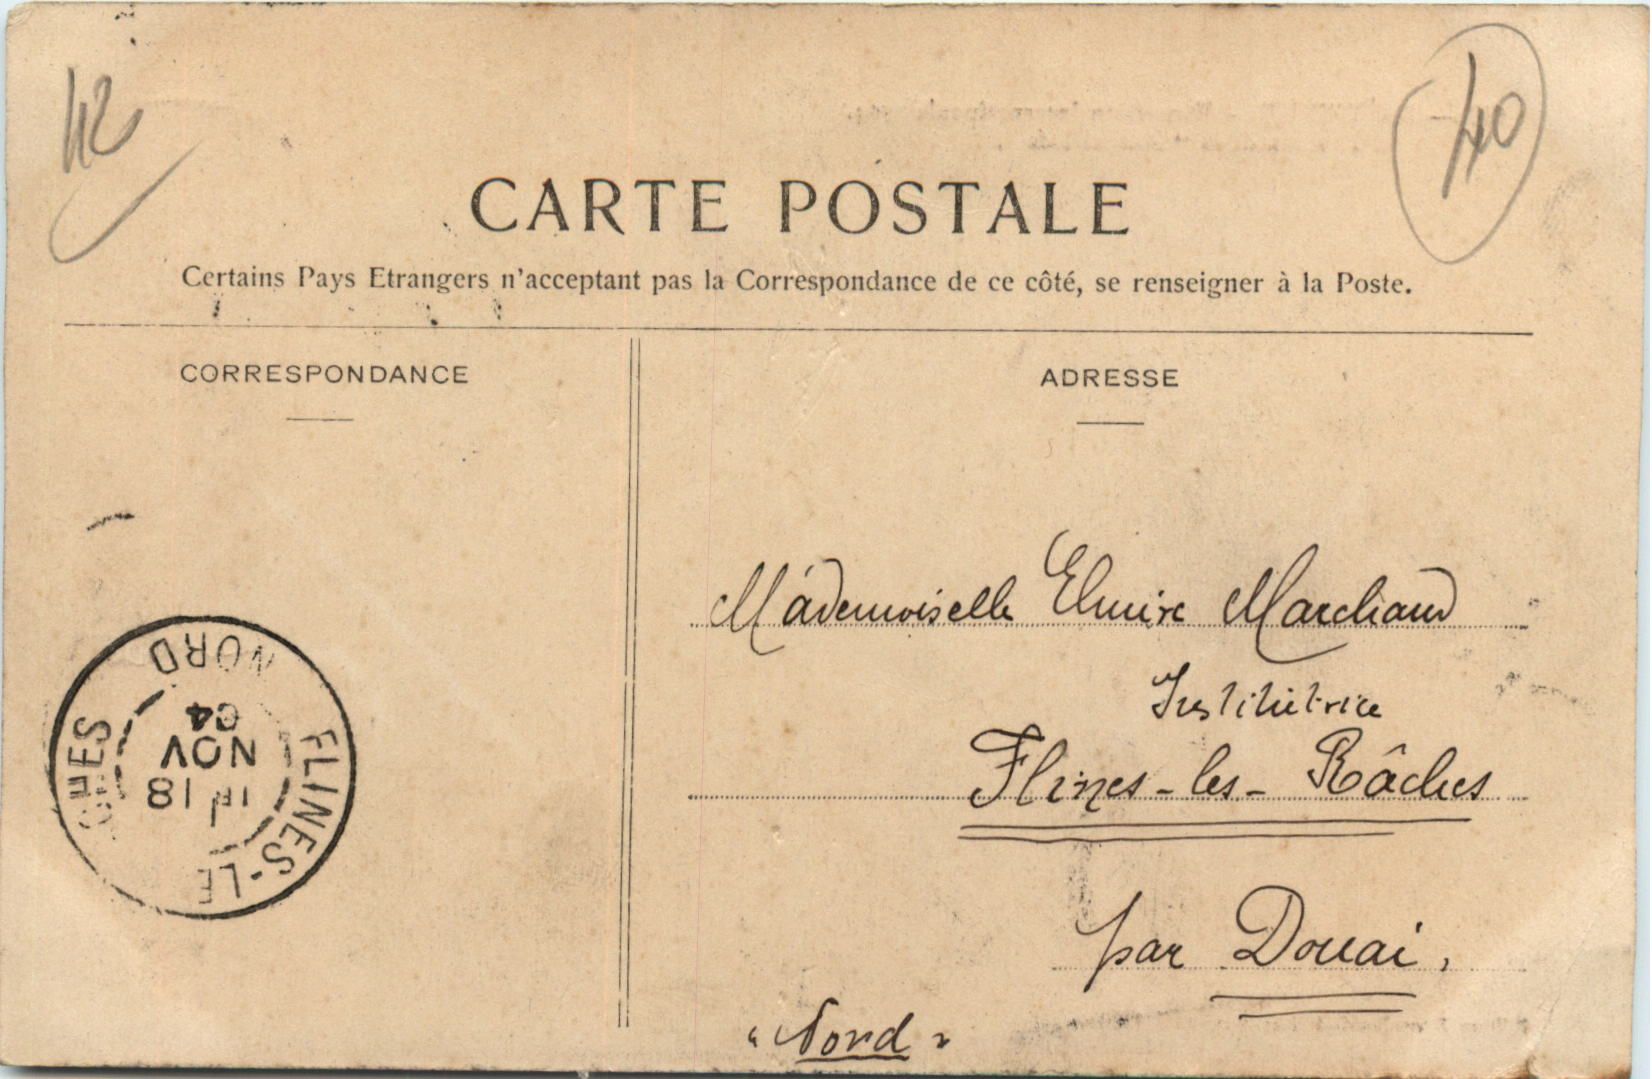 42
40
CARTE POSTALE
Certains Pays Etrangers n'acceptant pas la Correspondance de ce côté, se renseigner à la Poste.
CORRESPONDANCE
ADRESSE
Mademoiselle Elmire Marchand
Institutrice
Flines-les-Râches
par Douai,
"Nord"
FLINES-LE CHES
NORD
18
NOV
04